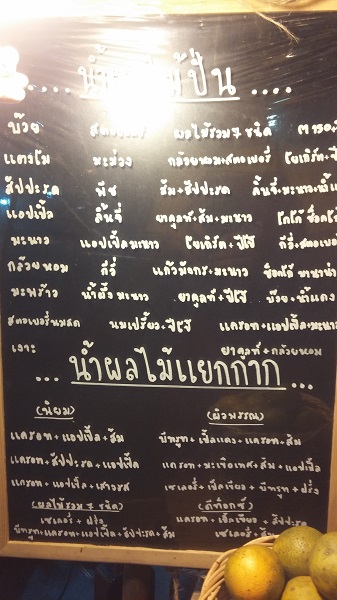 .... น้ำ ปั่น ....
บ๊วย ผลไม้รวม 7 ชนิด
แตงโม มะม่วง กล้วยหอม+สตอเบอรี่ โยเกิร์ต+
สัปปะรด พีช ส้ม+สัปปะรด ลิ้นจี่+มะนาว+
แอปเปิ้ล ลิ้นจี่ ยาคูลท์+ส้ม+มะนาว โกโก้
มะนาว แอปเปิ้ลมะนาว โยเกิร์ต+บีโช่ กีวี่+
กล้วยหอม กีวี่ แก้วมังกร+มะนาว
มะพร้าว น้ำผึ้งมะนาว ยาคูลท์+บีโช่ บ๊วย+น้ำแดง
สตอเบอรี่นมสด นมเปรี้ยว+บีโช่ แครอท+แอปเปิ้ล+มะนาว
เงาะ ยาคูลท์+กล้วยหอม
... น้ำผลไม้แยกกาก ...
(นิยม) (ผิวพรรณ)
แครอท+แอปเปิ้ล+ส้ม บีทรูท+ +แครอท+ส้ม
แครอท+สัปปะรด+แอปเปิ้ล แครอท+มะเขือเทศ+ส้ม+แอปเปิ้ล
แครอท+แอปเปิ้ล+เสาวรส เซเลอรี่+ +บีทรูท+ฝรั่ง
(ผลไม้รวม 7 ชนิด) (ดีท็อกซ์)
เซเลอรี่+ฝรั่ง แครอท+ +สัปปะรด
บีทรูท+แครอท+แอปเปิ้ล+สัปปะรด+ส้ม เซเลอรี่+